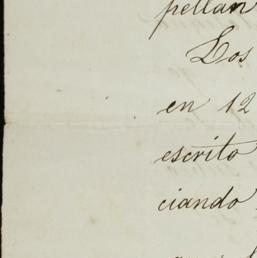 pellan
Los
en 12
escrito
ciando